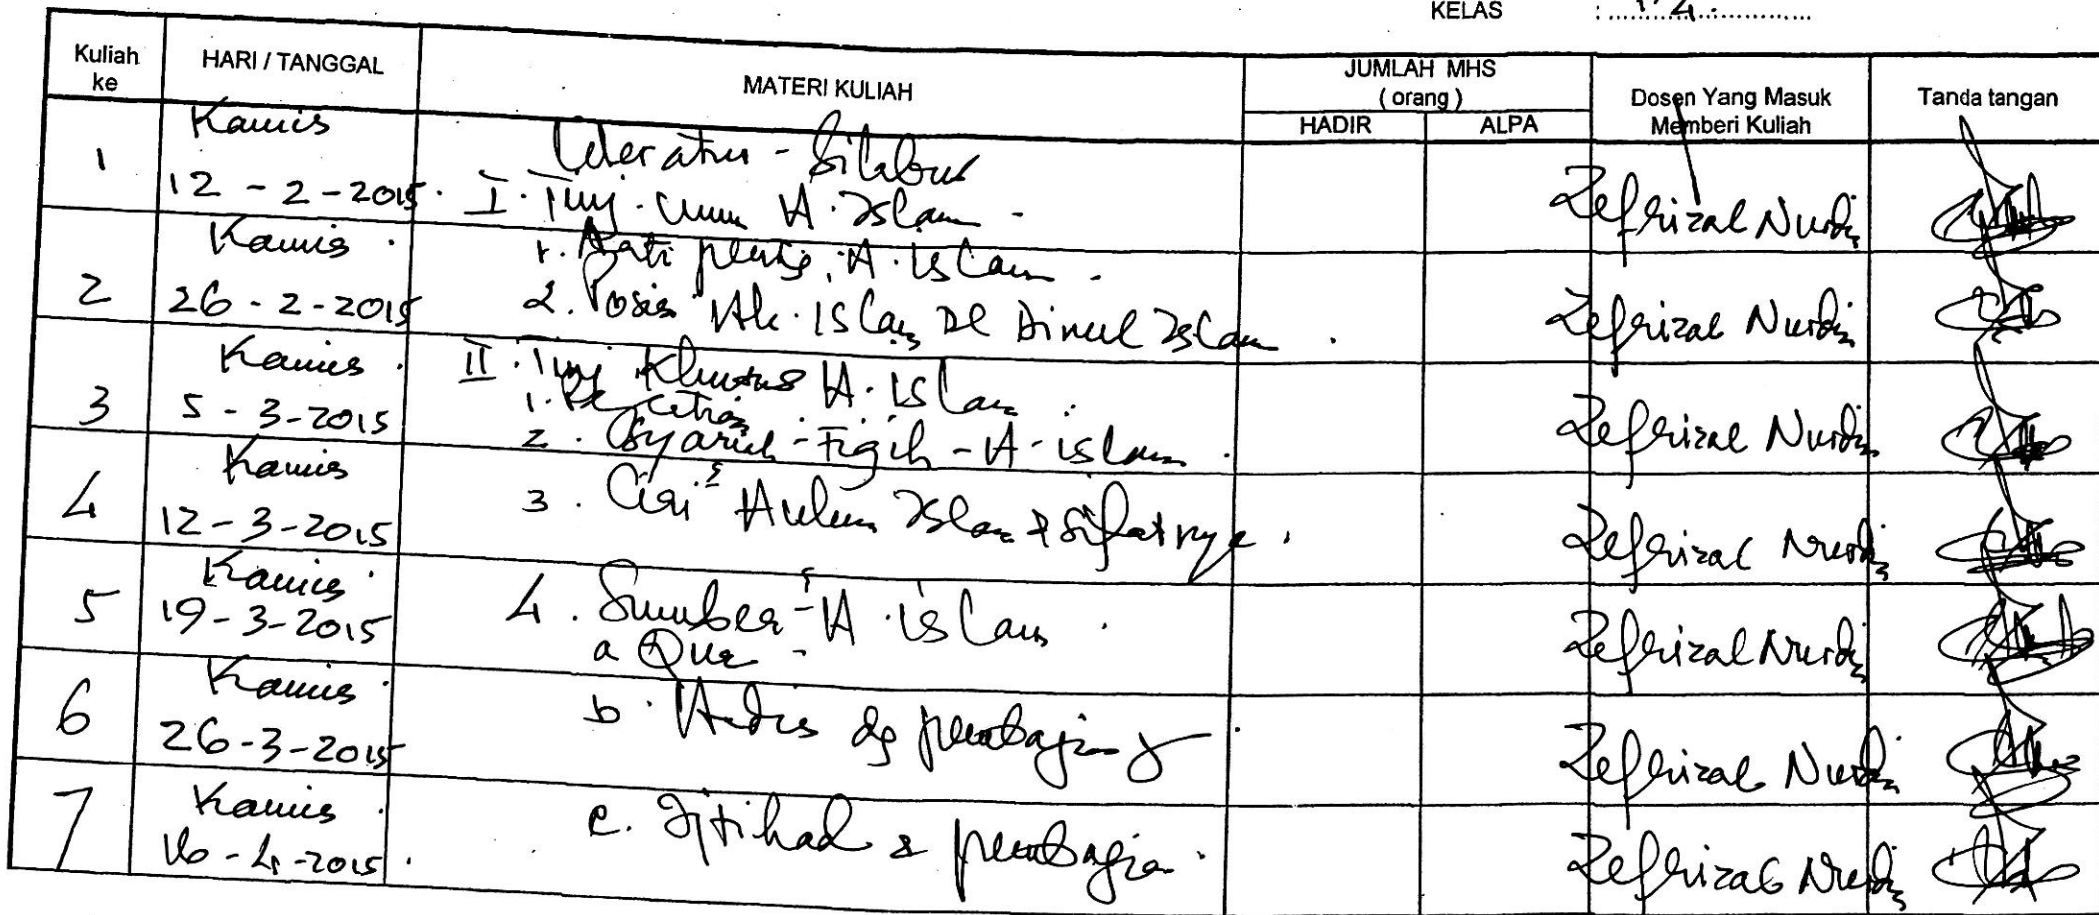 KELAS :
Kuliah ke
HARI / TANGGAL
MATERI KULIAH
JUMLAH MHS
( orang )
HADIR
ALPA
Dosen Yang Masuk
Memberi Kuliah
Tanda tangan
1
Kamis
12 - 2 - 2015.
Literatur - Silabus
I. Tinj. Umum H. Islam -
Zefrizal Nurdin
2
Kamis
26 - 2 - 2015
1. Arti H. Islam -
2. Posisi Hk. Islam Dl Dinul Islam.
Zefrizal Nurdin
3
Kamis
5 - 3 - 2015
II. Tinj Khusus H. Islam
1.
2. Syariah - Fiqih - H - islam.
Zefrizal Nurdin
4
Kamis
12 - 3 - 2015
3. Ciri² Hukum Islam & Sifatnya.
Zefrizal Nurdin
5
Kamis
19 - 3 - 2015
4. Sumber² H. Islam.
a Qur -
Zefrizal Nurdin
6
Kamis
26 - 3 - 2015
b. Hadis dg pembagian
Zefrizal Nurdin
7
Kamis
16 - 4 - 2015.
c. Ijtihad & pembagian.
Zefrizal Nurdin